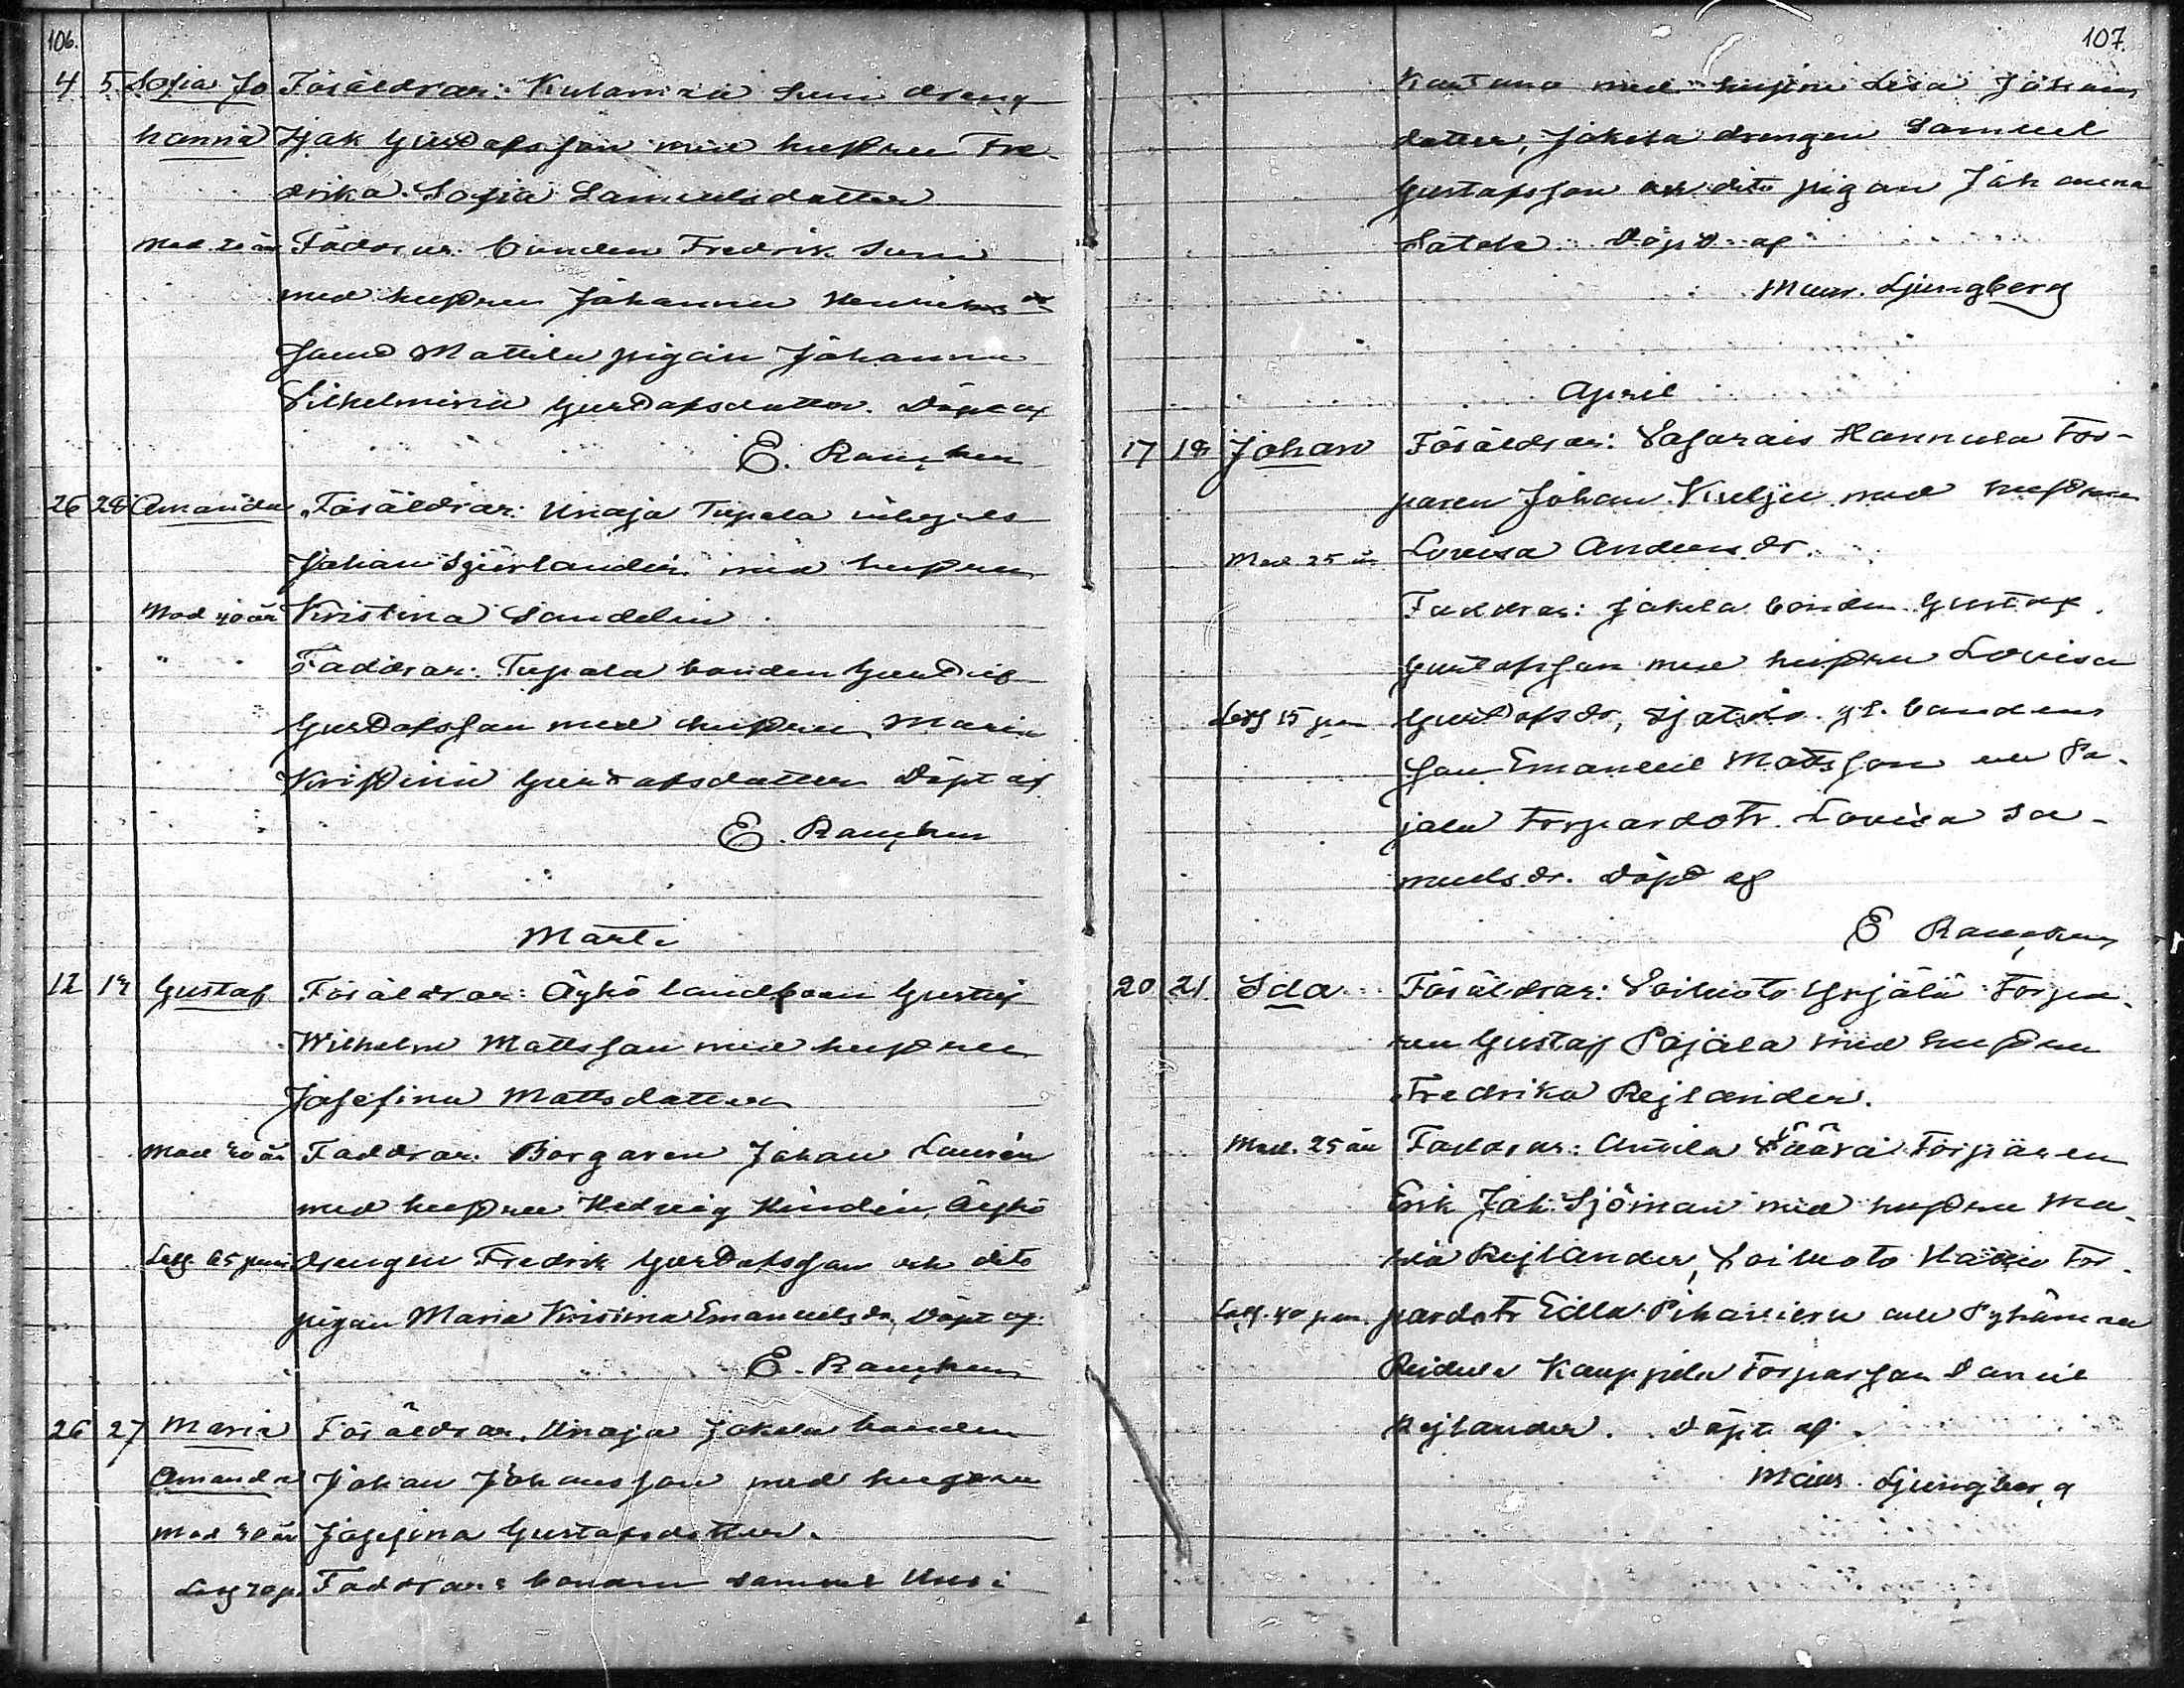 106.
4 5 Sofia Jo Föräldrar: Kulamaa Suni dreng
hanna Isak Gustafsson med hustru Fre-
drika Sofia Samuelsdotter
Mod. 20 år Faddrar: bonden Fredrik Suni
med hustru Johanna Henriks dr
samt Mattila pigan Johanna
Vilhelmina Gustafsdotter. Döpt af
E.
26 28 Amanda Föräldrar: Unaja Tupala inhyses
Johan Sjövlander med hustru
Mod 40 år Kristina Sandelin.
Faddrar: Tupala bonden Gustaf
Gustafsson med hustru Maria
Kristina Gustafsdotter Döpt af
E.
Marti
12 Gustaf Föräldrar: Äyhö landboen Gustaf
Wilhelm Mattsson med hustru
Josefina Mattsdotter
Mod år Faddrar: Borgaren Johan Laurén
med hustru Hedvig Äyhö
Lezg 65 drengen Fredrik Gustafsson och dito
pigan Maria Kristina Emanuels dr, Döpt af.
E.
26 27 Maria Föräldrar, Unaja Jakola bonden
Amanda Johan Johansson med hustru
Mod år Josefina Gustafsdotter.
Lezg Faddrar: bonden Samuel Uusi
107.
med hustru Lisa Johans
dotter, Jakola drengen Samuel
Gustafsson och dito pigan Johanna
Döpt af
Maur. Ljungberg
April
17 18 Johan Föräldrar: Hannula Tor-
paren Johan med hustru
Mod 25 år Lovisa Anders dr.
Faddrar: Jakola bonden Gustaf
Gustafsson med hustru Lovisa
Lezg 15 pen Gustafs dr, gl. bondens
son Emanuel Mattsson och Pa-
jala Torpardotr. Lovisa Sa-
muels dr. Döpt af
E
20 21. Ida Föräldrar: Voiluoto Yrjälä Torpa-
ren Gustaf Pajala med hustru
Fredrika Rejlander.
Mod. 25 år Faddrar: Anttila Väärä Torparen
Erik Joh. Sjöman med hustru Ma-
ria Rejlander, Voiluoto Tor-
Lezg. 40 pen. pardotr Edla och Pyhämaa
Reidula Kauppila Torparson Daniel
Rejlander. Döpt af
Maur. Ljungberg